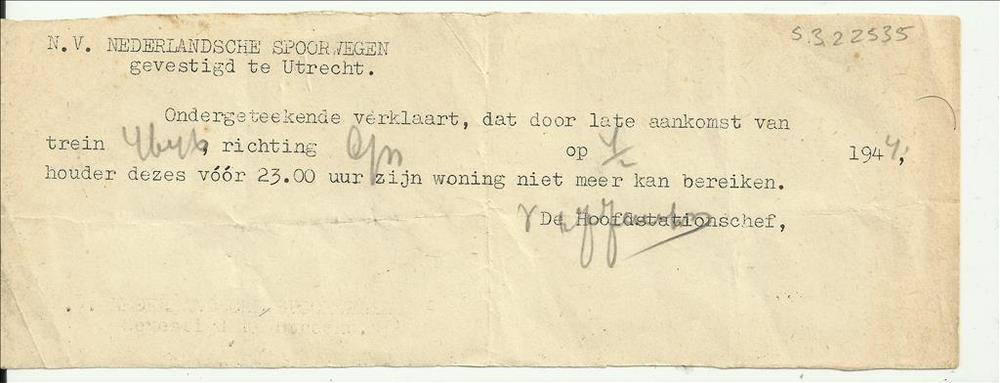 S.3.22535
N.V. NEDERLANDSCHE SPOORWEGEN
gevestigd te Utrecht.
Ondergeteekende verklaart, dat door late aankomst van
trein , richting op 4/2 1944;
houder dezes vóór 23.00 uur zijn woning niet meer kan bereiken.
De Hoofdstationschef,